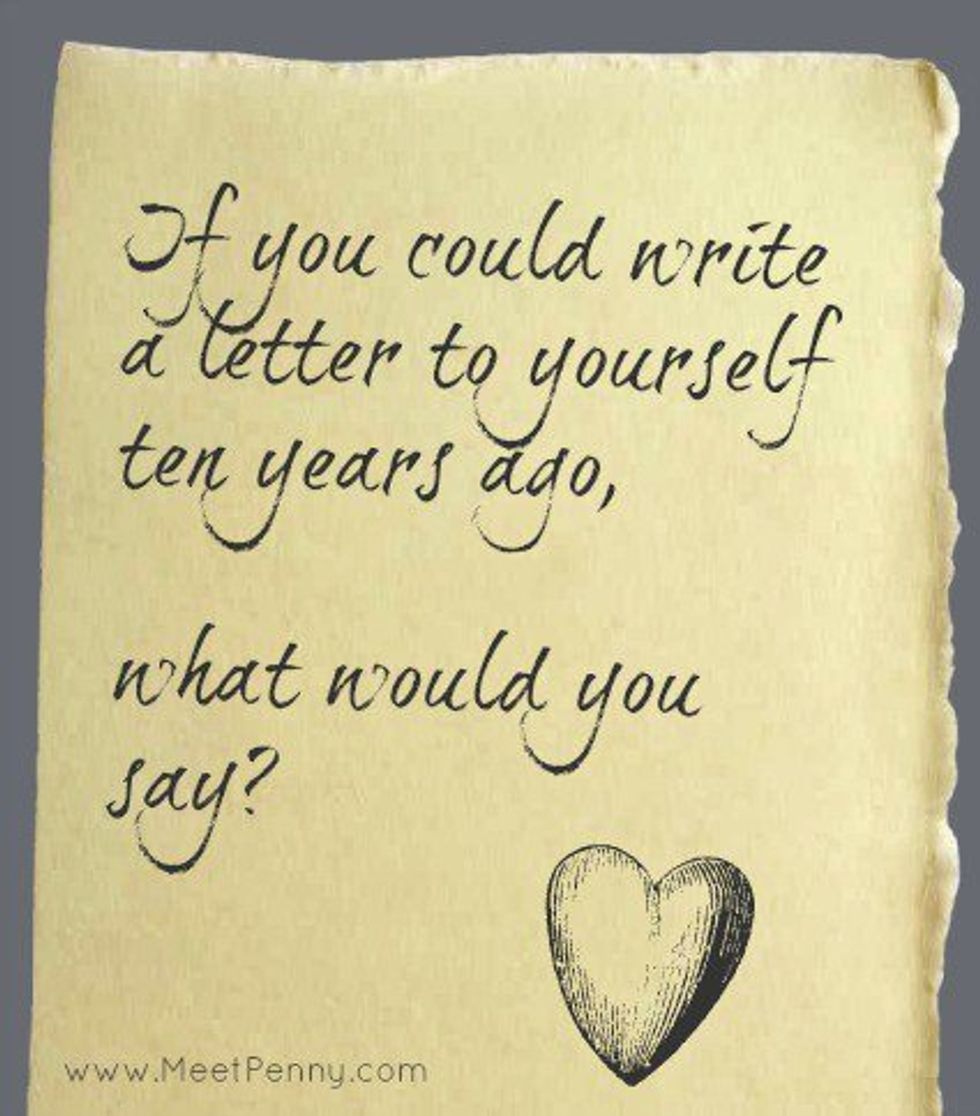 If you could write
a letter to yourself
ten years ago,
what would you
say?
www.MeetPenny.com